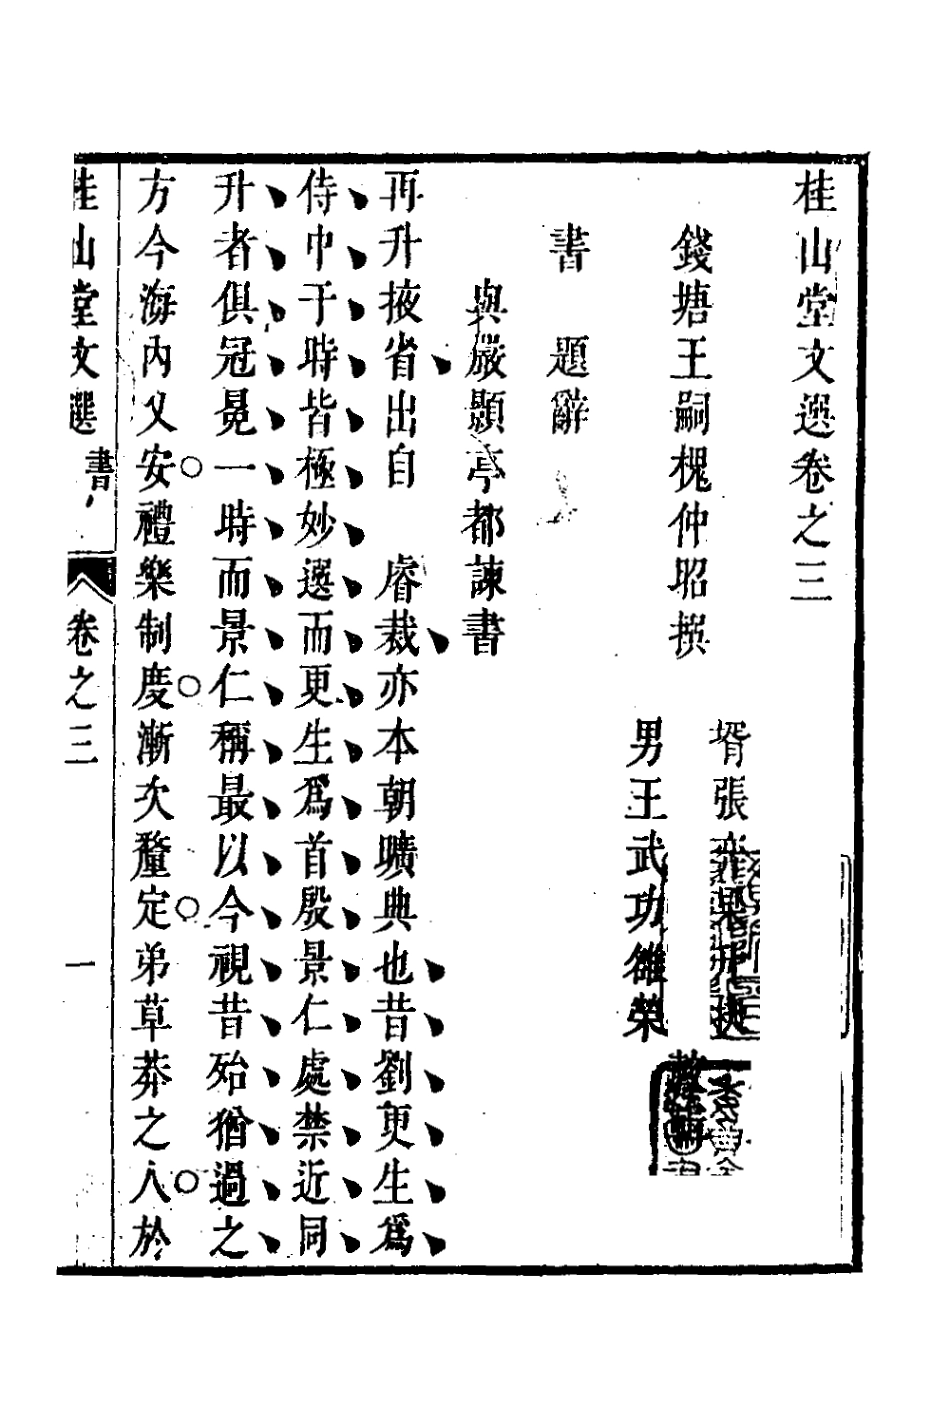 桂山堂文選卷之三
錢塘王嗣槐仲昭撰
壻張
男王武功雒榮
書　題辭
與嚴顥亭都諫書
再升掖省出自　睿裁亦本朝曠典也昔劉更生爲
侍中于時皆極妙選而更生爲首殷景仁處禁近同
升者俱冠冕一時而景仁稱最以今視昔殆猶過之
方今海內乂安禮樂制度漸次釐定弟草莽之人於
桂山堂文選　書　卷之三　一